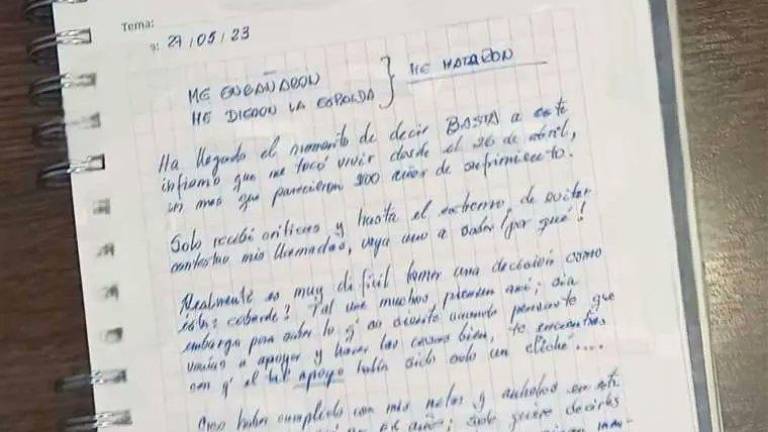 Tema:
29/05/23
ME ENGAÑARON
ME DIERON LA ESPALDA } ME MATARON
Ha llegado el momento de decir BASTA a este
infierno que me tocó vivir desde el 26 de abril,
un mes que parecieron 200 años de sufrimiento.
Solo recibí críticas y hasta el extremo, de evitar
contestar mis llamadas, vaya uno a saber (por qué!
Realmente es muy difícil tomar una decisión como
ésta; cobarde! Tal vez muchos piensen así; sin
embargo para saber lo q' se siente cuando pensaste que
venías a apoyar y hacer las cosas bien, te encuentras
con q' el tal apoyo había sido solo un cliché....
Creo haber cumplido con mis metas y anhelos en
años; solo quiero decirles